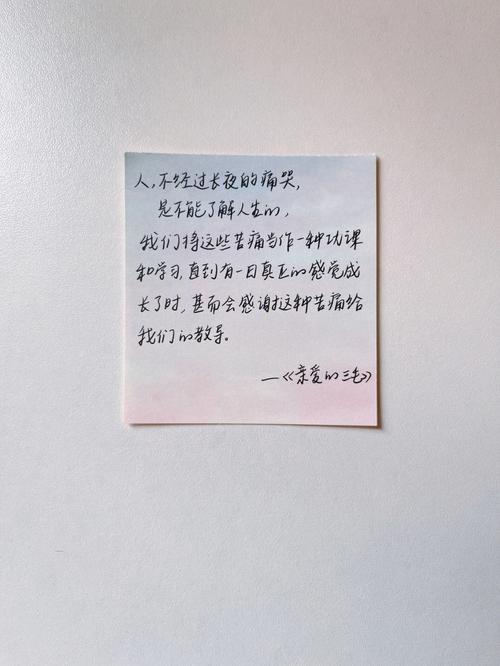 人，不经过长夜的痛哭，
是不能了解人生的，
我们将这些苦痛当作一种功课
和学习，直到有一日真正的感觉成
长了时，甚而会感谢这种苦痛给
我们的教导。
—《亲爱的三毛》